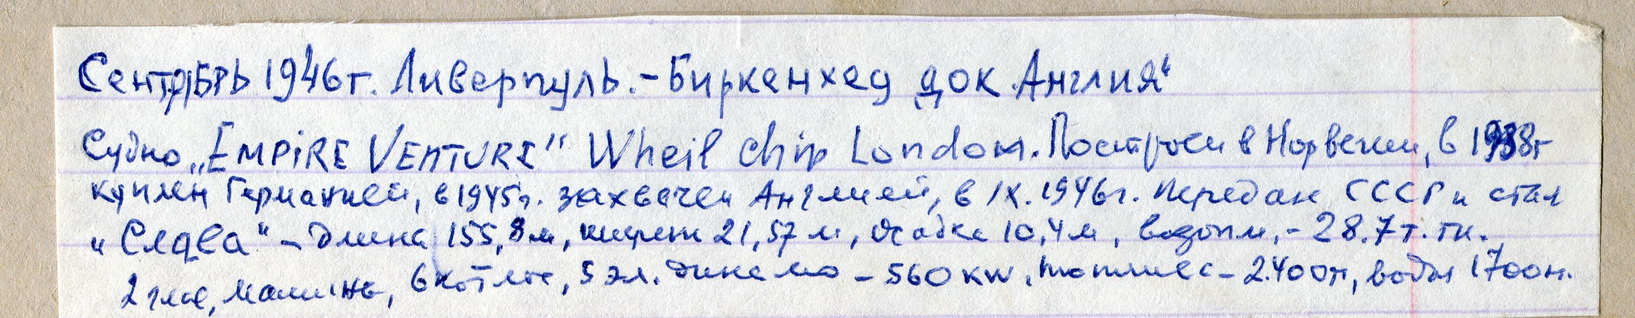 Сентябрь 1946г. Ливерпуль.-Биркенхед док Англия"
Судно „EMPIRE VENTURE" Wheil chip London. Построен в Норвегии, в 1938г
куплен Германией, в 1945г. захвачен Англией, в IX.1946г. передан СССР и стал
„Слава" - длина 155,8м, ширина 21,57м, осадка 10,4м, водоизм,- 28.7т.тн.
2 глав, машины, 6 котлов, 5 эл. динамо - 560 KW, топливо - 2.400т, воды 1700т.